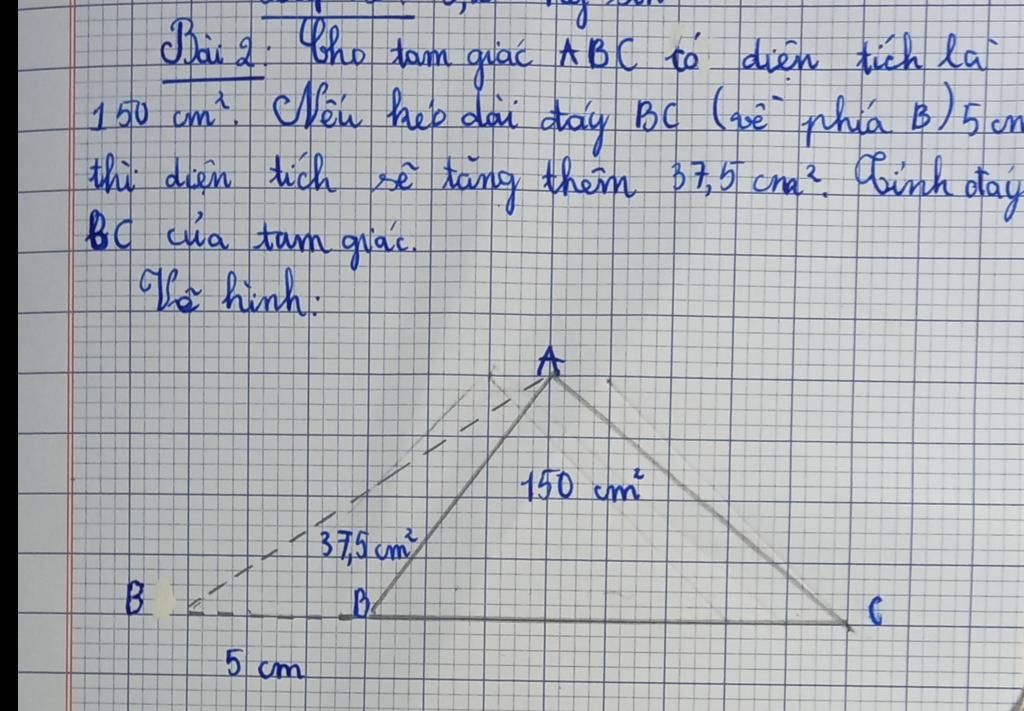 Bài 2: Cho tam giác ABC có diện tích là
150 cm². Nếu kéo dài đáy BC (về phía B) 5 cm
thì diện tích sẽ tăng thêm 37,5 cm². Tính đáy
BC của tam giác.
Vẽ hình:
A
150 cm²
37,5 cm²
B B C
5 cm